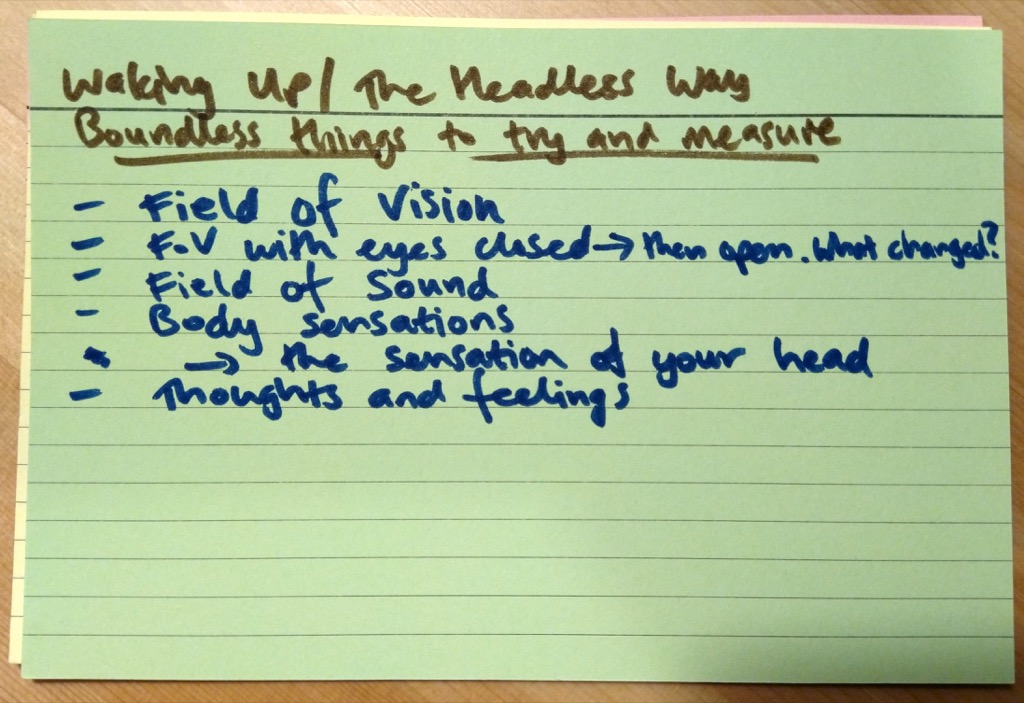 Waking Up/ The Headless Way
Boundless things to try and measure
- Field of Vision
- F.V with eyes closed → then open. What changed?
- Field of Sound
- Body sensations
- → the sensation of your head
- Thoughts and feelings